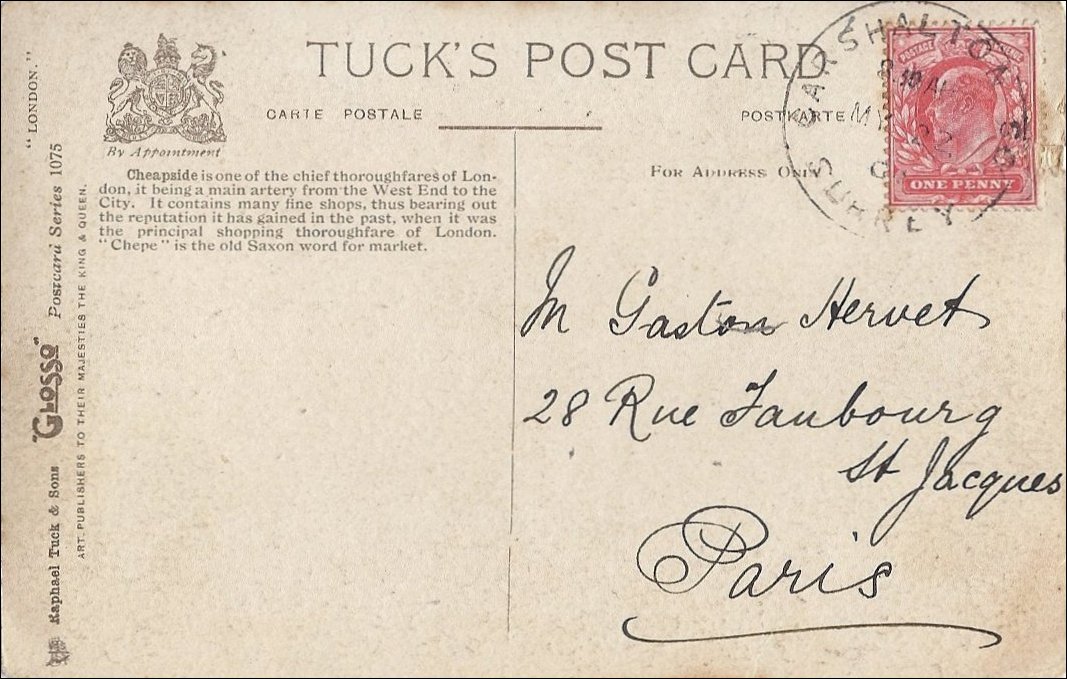 TUCK'S POST CARD
CARTE POSTALE
POSTKARTE
By Appointment
FOR ADDRESS ONLY
Cheapside is one of the chief thoroughfares of Lon-
don, it being a main artery from the West End to the
City. It contains many fine shops, thus bearing out
the reputation it has gained in the past, when it was
the principal shopping thoroughfare of London.
"Chepe" is the old Saxon word for market.
"LONDON."
Raphael Tuck & Sons "GLOSSO" Postcard Series 1075
ART PUBLISHERS TO THEIR MAJESTIES THE KING & QUEEN.
CARSHALTON
SURREY
MY 22
POSTAGE
ONE PENNY
M Gaston Hervet
28 Rue Faubourg
St Jacques
Paris